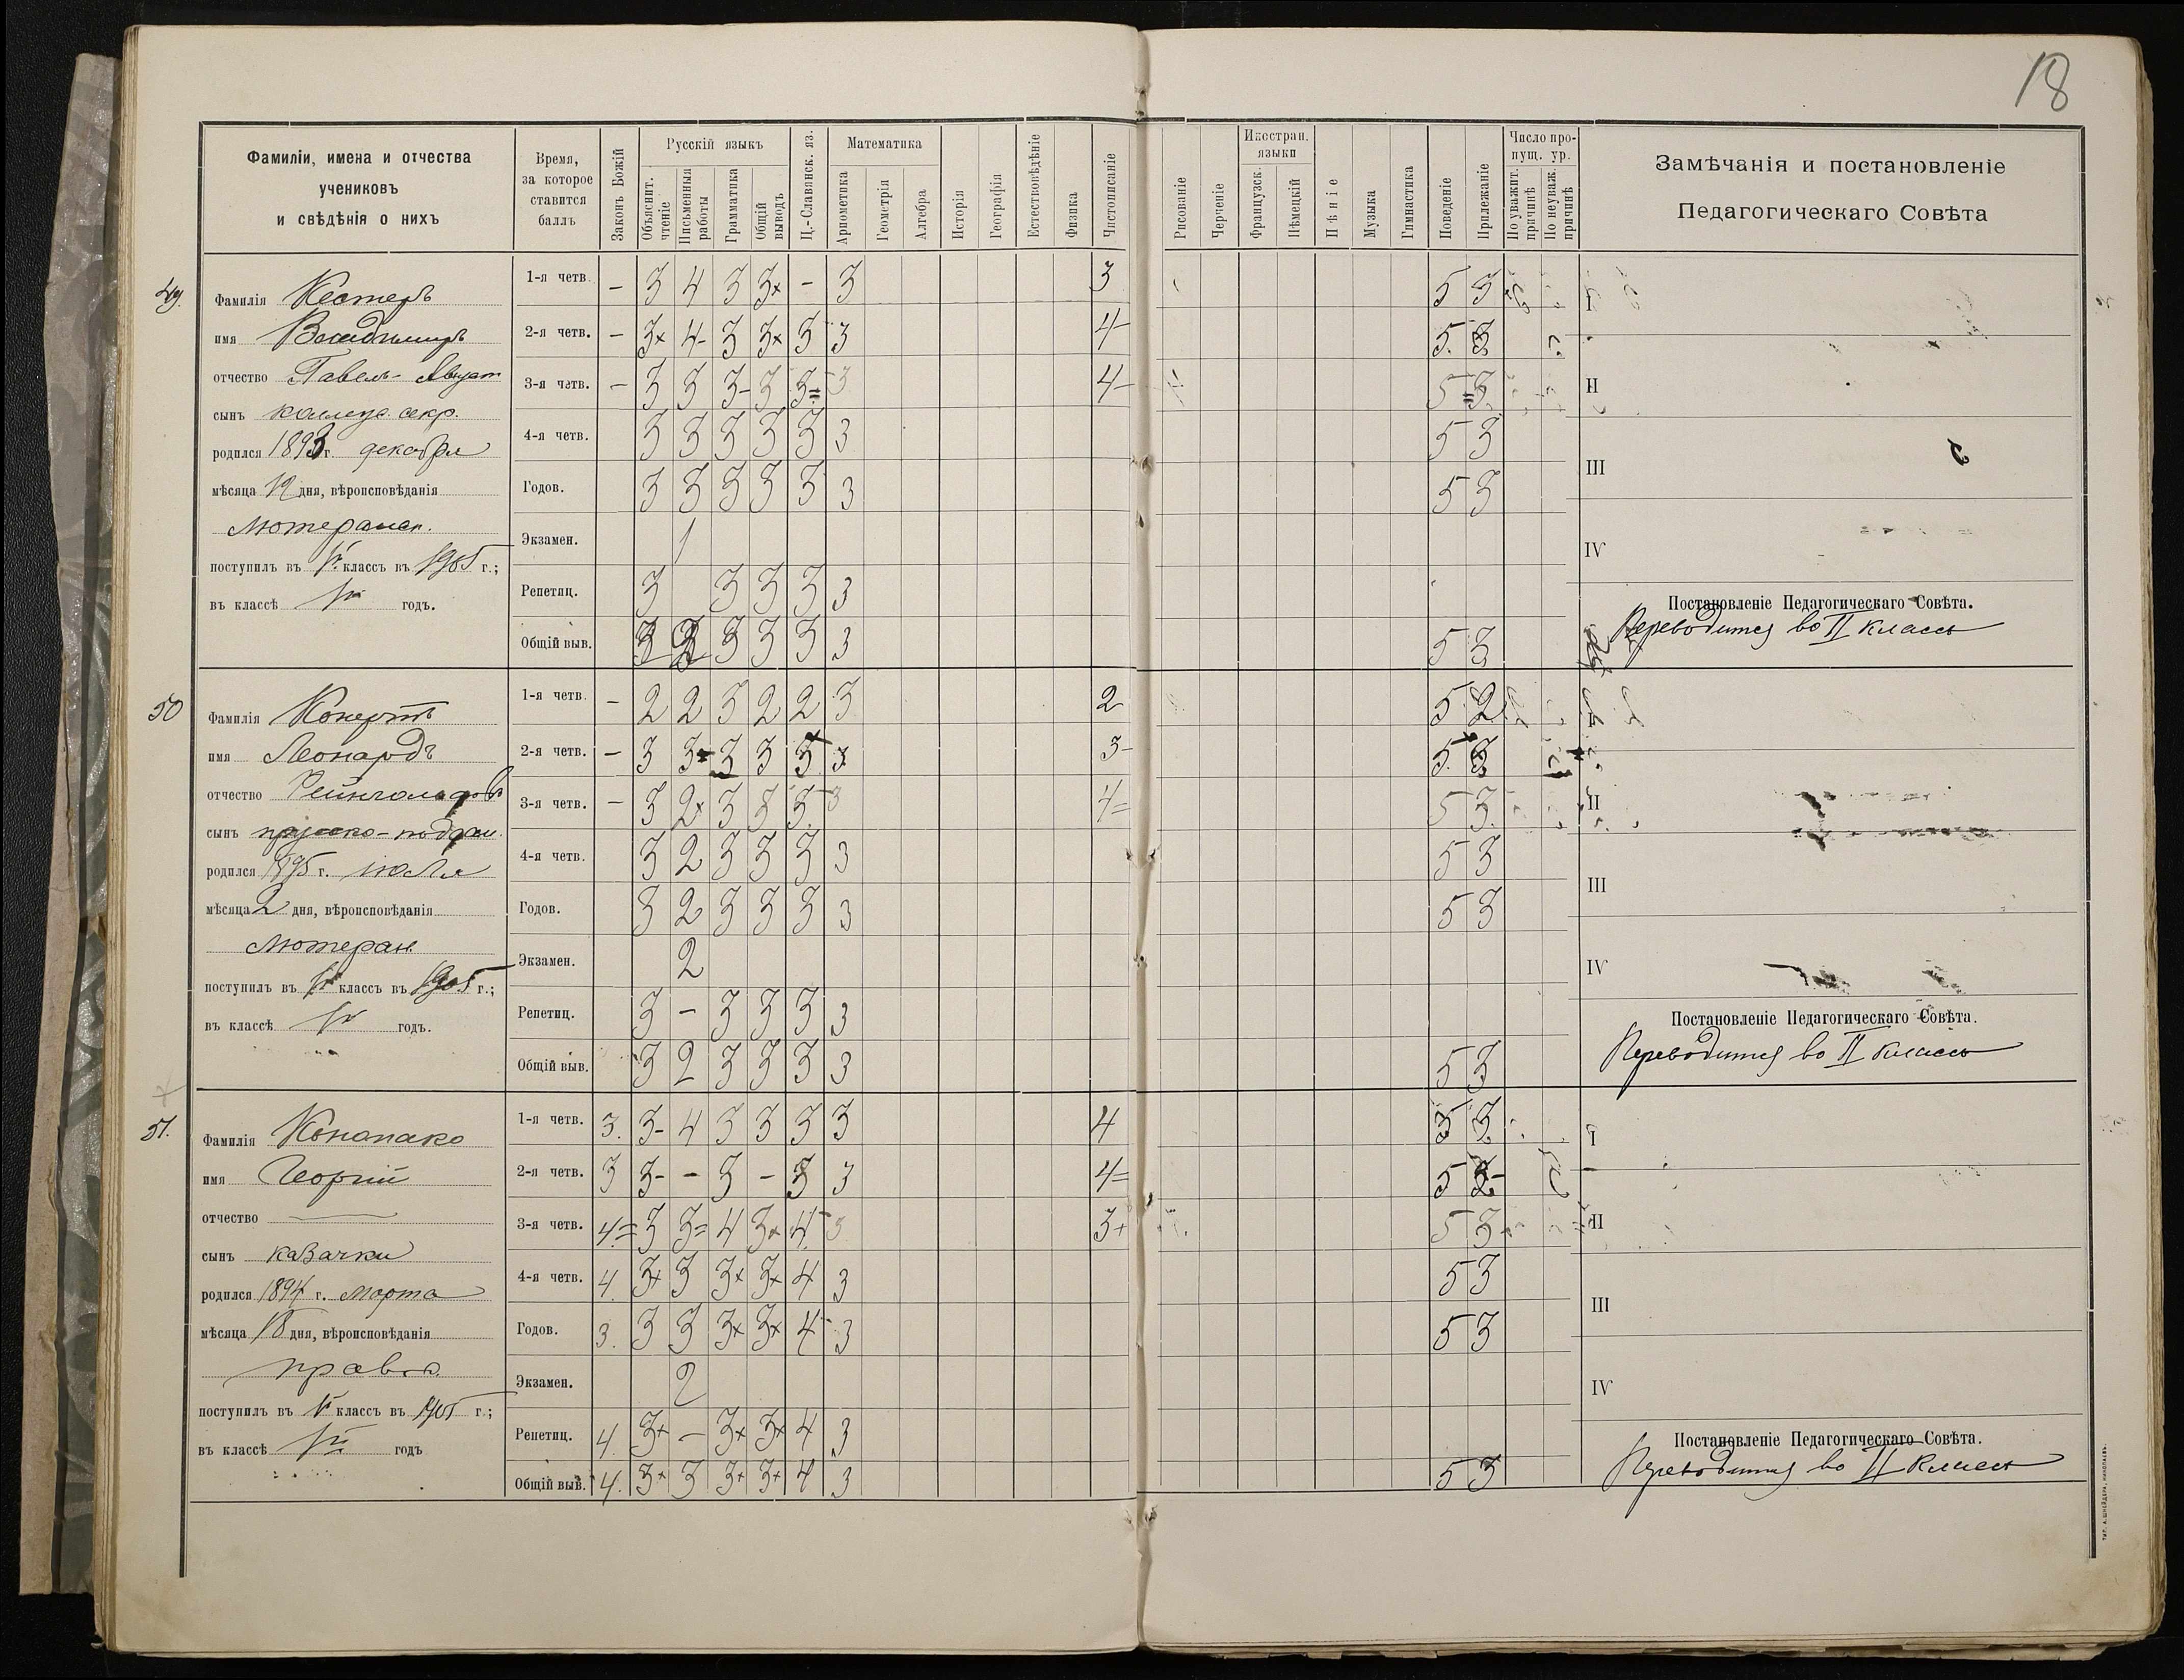 18
Фамиліи, имена и отчества
учениковъ
и свѣдѣнія о нихъ
Время,
за которое
ставится
баллъ
Законъ Божій
Русскій языкъ
Объяснит. чтеніе
Письменныя работы
Грамматика
Общій выводъ
Ц.-Славянск. яз.
Математика
Ариѳметика
Геометрія
Алгебра
Исторія
Географія
Естествовѣдѣніе
Физика
Чистописаніе
Рисованіе
Черченіе
Иностран. языки
Французск.
Нѣмецкій
Пѣніе
Музыка
Гимнастика
Поведеніе
Прилежаніе
Число пропущ. ур.
По уважит. причинѣ
По неуваж. причинѣ
Замѣчанія и постановленіе
Педагогическаго Совѣта
49.
Фамилія Кестеръ
имя Владимиръ
отчество Павелъ-Август
сынъ коллеж. секр.
родился 1893 г. декабря
мѣсяца 19 дня, вѣроисповѣданія
лютеранск.
поступилъ въ классъ въ 1905 г.;
въ классѣ годъ.
1-я четв. – 3 4 3 3+ – 3 3 5 3
2-я четв. – 3+ 4- 3 3+ 3 3 4- 5 3
3-я четв. – 3 3 3- 3 3= 3 4- 5= 3
4-я четв. 3 3 3 3 3 3 5 3
Годов. 3 3 3 3 3 3 5 3
Экзамен. 1
Репетиц. 3 3 3 3 3
Общій выв. 3 3 3 3 3 5 3
I
II
III
IV
Постановленіе Педагогическаго Совѣта.
Переводится во II классъ
50
Фамилія Конертъ
имя Леонардъ
отчество Рейнгольдовъ
сынъ прусско-поддан.
родился 1895 г. июля
мѣсяца 2 дня, вѣроисповѣданія
лютеран.
поступилъ въ классъ въ 1905 г.;
въ классѣ годъ.
1-я четв. – 2 2 3 2 2 3 2 5 2
2-я четв. – 3 3= 3 3 3 3 3- 5 3
3-я четв. – 3 2+ 3 3 3 3 4= 5 3
4-я четв. 3 2 3 3 3 3 5 3
Годов. 3 2 3 3 3 3 5 3
Экзамен. 2
Репетиц. 3 – 3 3 3 3
Общій выв. 3 2 3 3 3 3 5 3
I
II
III
IV
Постановленіе Педагогическаго Совѣта.
Переводится во II классъ
51.
Фамилія Конопако
имя Георгій
отчество —
сынъ казачки
родился 1894 г. марта
мѣсяца 18 дня, вѣроисповѣданія
правсл.
поступилъ въ классъ въ 1905 г.;
въ классѣ годъ
1-я четв. 3. 3- 4 3 3 3 3 4 5 3
2-я четв. 3 3- – 3 – 3 3 4= 5 3-
3-я четв. 4= 3 3= 4 3+ 4 3 3+ 5 3
4-я четв. 4. 3+ 3 3+ 3+ 4 3 5 3
Годов. 3. 3 3 3+ 3+ 4 3 5 3
Экзамен. 2
Репетиц. 4. 3+ – 3+ 3+ 4 3
Общій выв. 4. 3+ 3 3+ 3+ 4 3 5 3
I
II
III
IV
Постановленіе Педагогическаго Совѣта.
Переводится во II классъ
ТИП. А. ШНЕЙДЕРА, НИКОЛАЕВЪ.